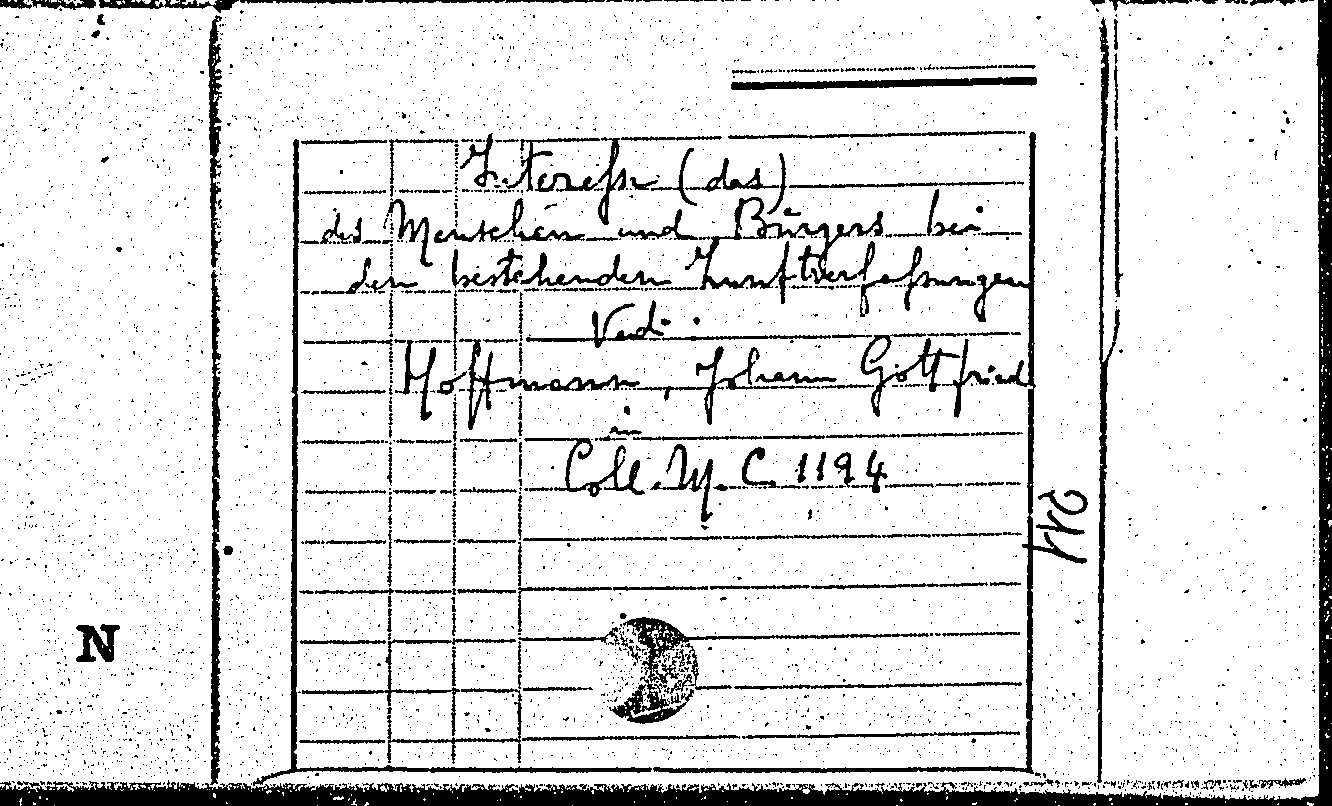 Interesse (das)
des Menschen und Bürgers bei
den bestehenden Zunftverfassungen
Vid.
Hoffmann, Johann Gottfried
in
Coll. M. C. 1194
244
N